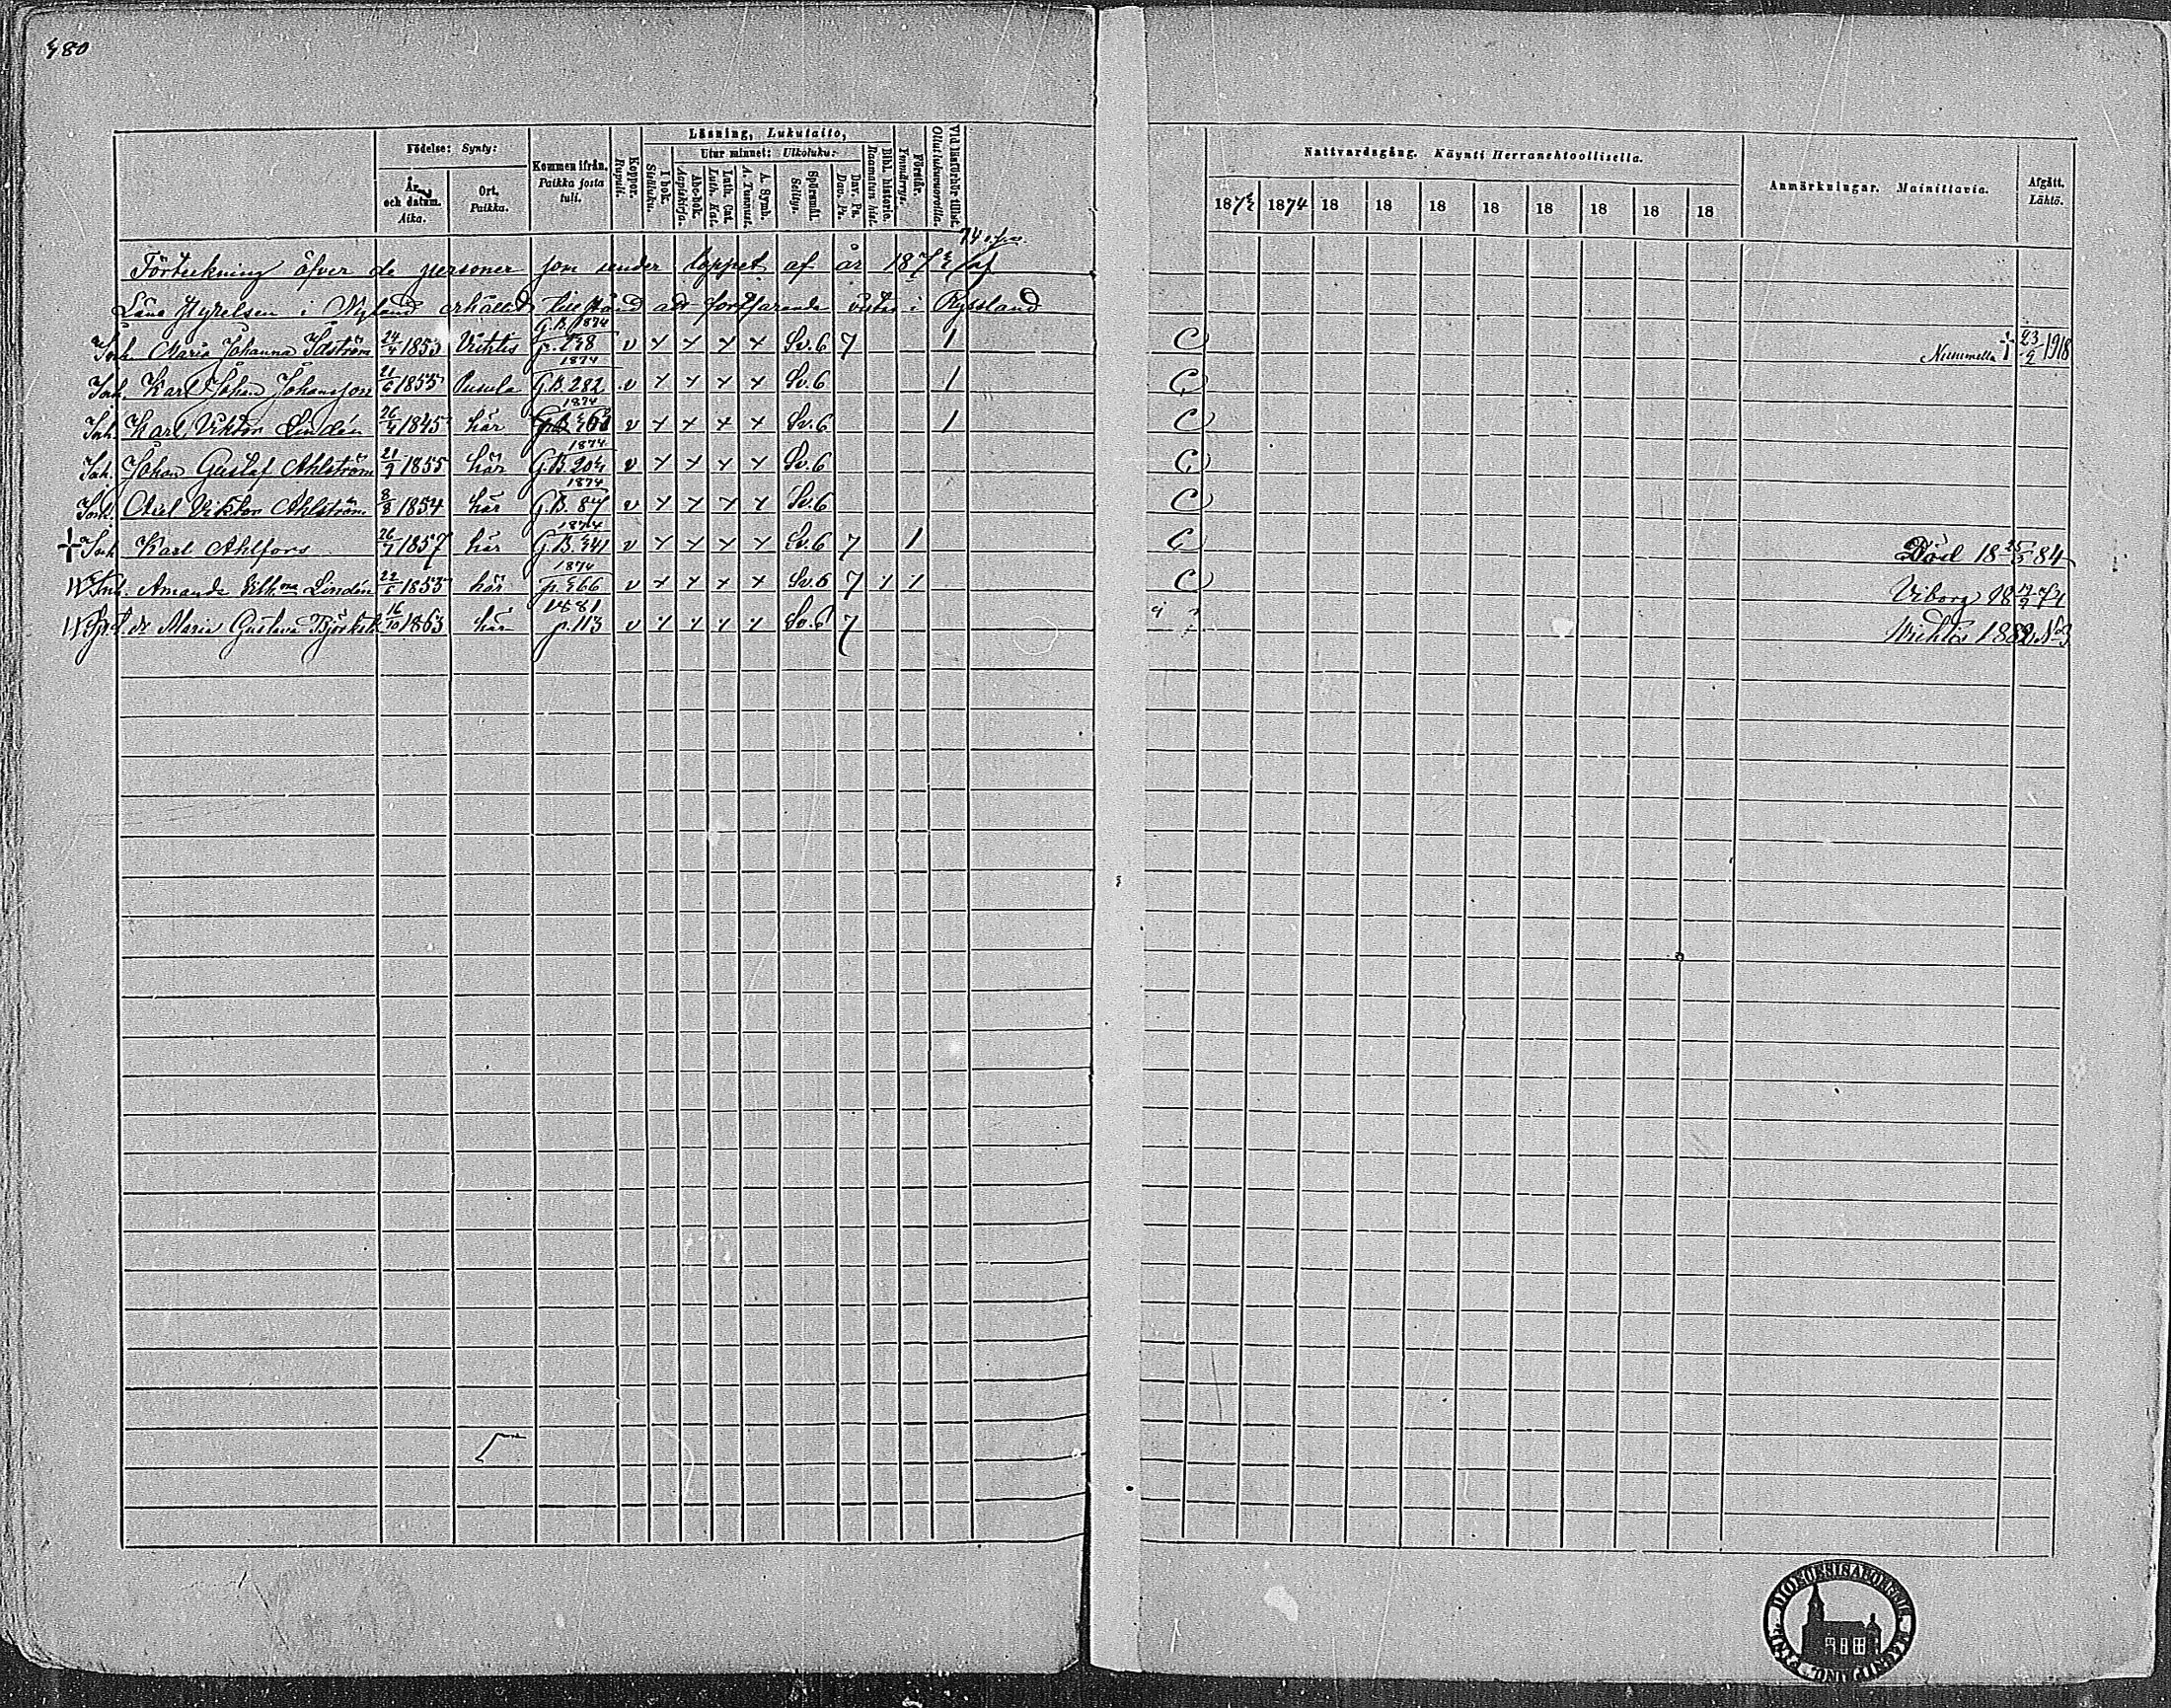 480
Födelse: Synty:
År och datum. Aika.
Ort. Paikka.
Kommen ifrån. Paikka josta tuli.
Koppor. Rupuli.
Läsning, Lukutaito,
I bok. Sisäluku.
Utur minnet: Ulkoluku:
Abcbok. Aapiskirja.
Luth. Cat. Luth. Kat.
A. Symb. A. Tunnust.
Spörsmål. Selitys.
Dav. Ps. Dav. Ps.
Bibl. historia. Raamatun hist.
Förstår. Ymmärrys.
Vid läsförhör tillst. Ollut lukuvuoroilla.
Nattvardsgång. Käynti Herranehtoollisella.
1872 1874 18 18 18 18 18 18 18 18
Anmärkningar. Mainittavia.
Afgått. Lähtö.
Förteckning öfver de personer som under loppet af år 187
Läns styrelsen i Nyland erhållit tillstånd att fortfarande vistas i Ryssland
Maria Johanna 24/4 1853 Vichtis G.B. 1874 v x x x x Sv. 6 7 1 C Nummella † 23/2 1918
Karl Johan Johansson 21/6 1855 Pusula 1874 G.B. 282 v x x x x Sv. 6 1 C
Karl Viktor Lindén 26/4 1845 här 1874 v x x x x Sv. 6 1 C
Johan Gustaf Ahlström 21/9 1855 här 1874 G.B. 204 v x x x x Sv. 6 C
Axel Viktor Ahlström 8/8 1854 här 1874 G.B. 87 v x x x x Sv. 6 C
† Karl Ahlfors 26/7 1857 här 1874 G.B. 441 v x x x x Sv. 6 7 1 C Död 18 25/5 84
Amanda Lindén 22/6 1855 här 1874 p. 466 v x x x x Sv. 6 7 1 1 C Viborg 18 74
Maria Gustava 16/10 1863 här 1881 p. 113 v x x x x Sv. 6 7 Wichtis 1882 N 3